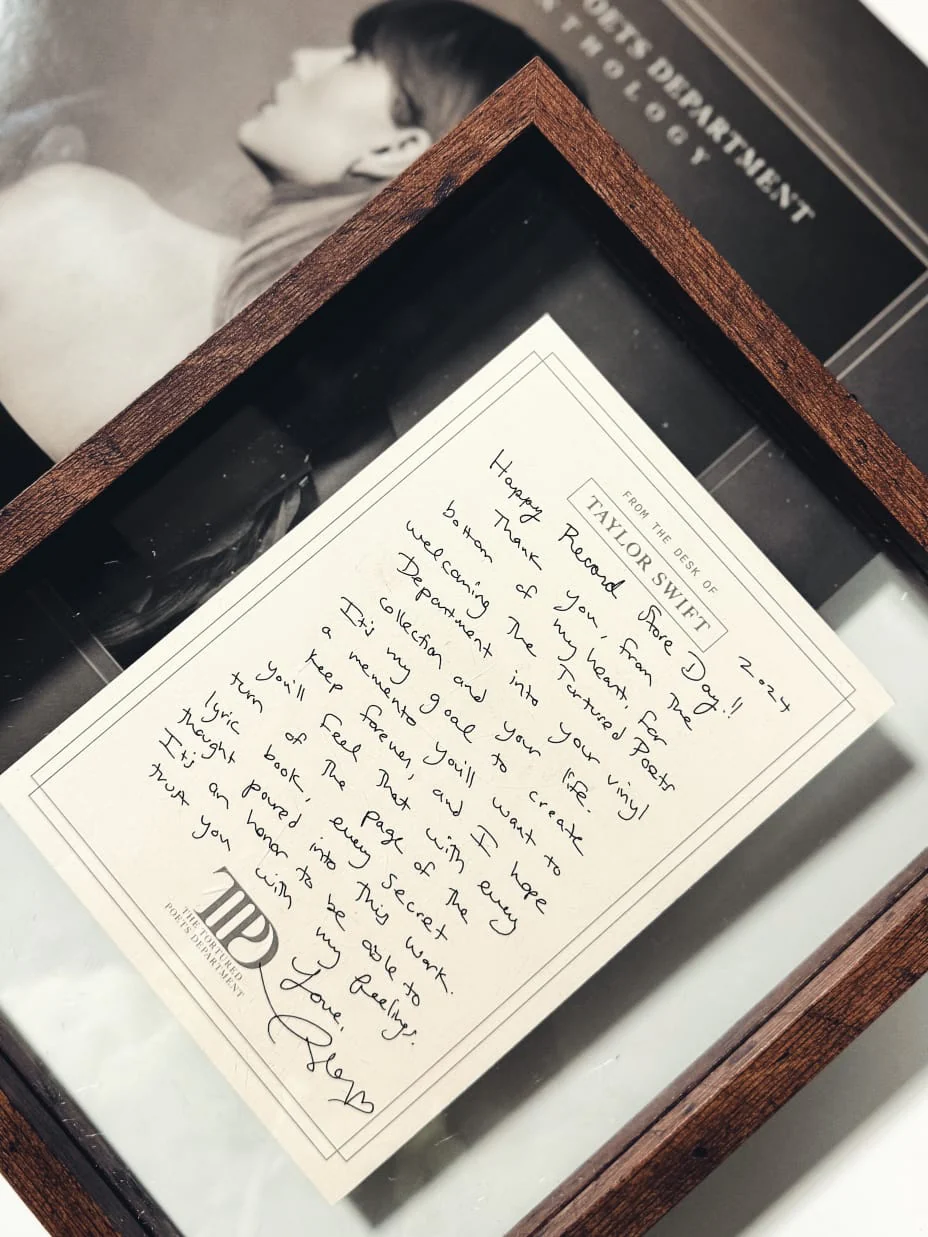 POETS DEPARTMENT
NTHOLOGY
FROM THE DESK OF
TAYLOR SWIFT
2024
Happy Record Store Day!!
Thank you, from the
bottom of my heart, for
welcoming The Tortured Poets
Department into your vinyl
collection and your life.
It's my goal to create
a memento you'll want to
keep forever, and I hope
you'll feel that with every
turn of the page of the
lyric book, every secret
thought poured into this work.
It's an honor to be able to
trust you with my feelings.
Love,
TTPD
THE TORTURED
POETS DEPARTMENT